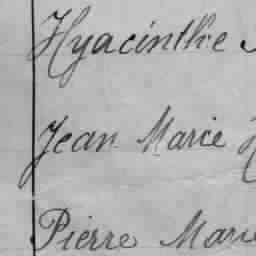 Hyacinthe
Jean Marie
Pierre Marie